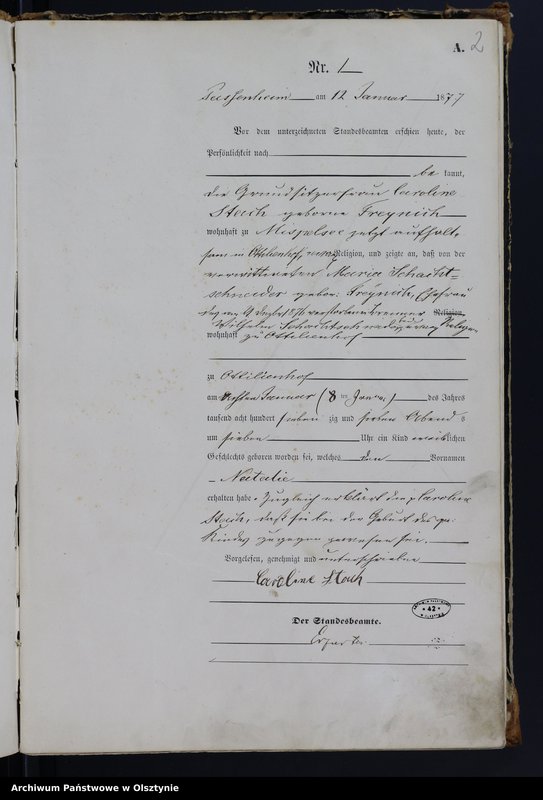 A. 2
Nr. 1
am 12 Januar 1877
Vor dem unterzeichneten Standesbeamten erschien heute, der
Persönlichkeit nach
be kannt,
die Caroline
Stach geborne Freynick
wohnhaft zu jetzt aufhalt-
sam in Ottilienhof, Religion, und zeigte an, daß von der
verwittweten Maria Schacht-
schneider gebor: Freynick, Ehefrau
des am Religion,
Wilhelm Religion
wohnhaft zu Ottilienhof
zu Ottilienhof
am achten Januar (8ten Janr.) des Jahres
tausend acht hundert sieben zig und sieben Abends
um sieben Uhr ein Kind weiblichen
Geschlechts geboren worden sei, welches den Vornamen
Natalie
erhalten habe. Zugleich erklärt die p Caroline
Stach, daß sie bei der Geburt des qu:
Kindes zugegen gewesen sei.
Vorgelesen, genehmigt und unterschrieben
Caroline Stach
* 42 *
Der Standesbeamte.
Archiwum Państwowe w Olsztynie